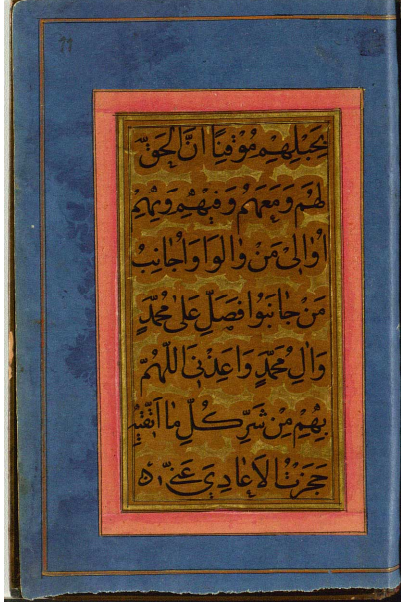 بِحَبْلِهِمْ مُوْقِنًا اَنَّ الْحَقَّ
لَهُمْ وَمَعَهُمْ وَفِيْهِمْ وَبِهِمْ
اُوٰالِيْ مَنْ وٰالَوْا وَاُجٰانِبُ
مَنْ جٰانَبُوا فَصَلِّ عَلٰى مُحَمَّدٍ
وَاٰلِ مُحَمَّدٍ وَاَعِذْنِيَ اللّٰهُمَّ
بِهِمْ مِنْ شَرِّ كُلِّ مٰا اَتَّقِيْهِ
حَجَزْتُ الْاَعٰادِيَ عَنِّيْ